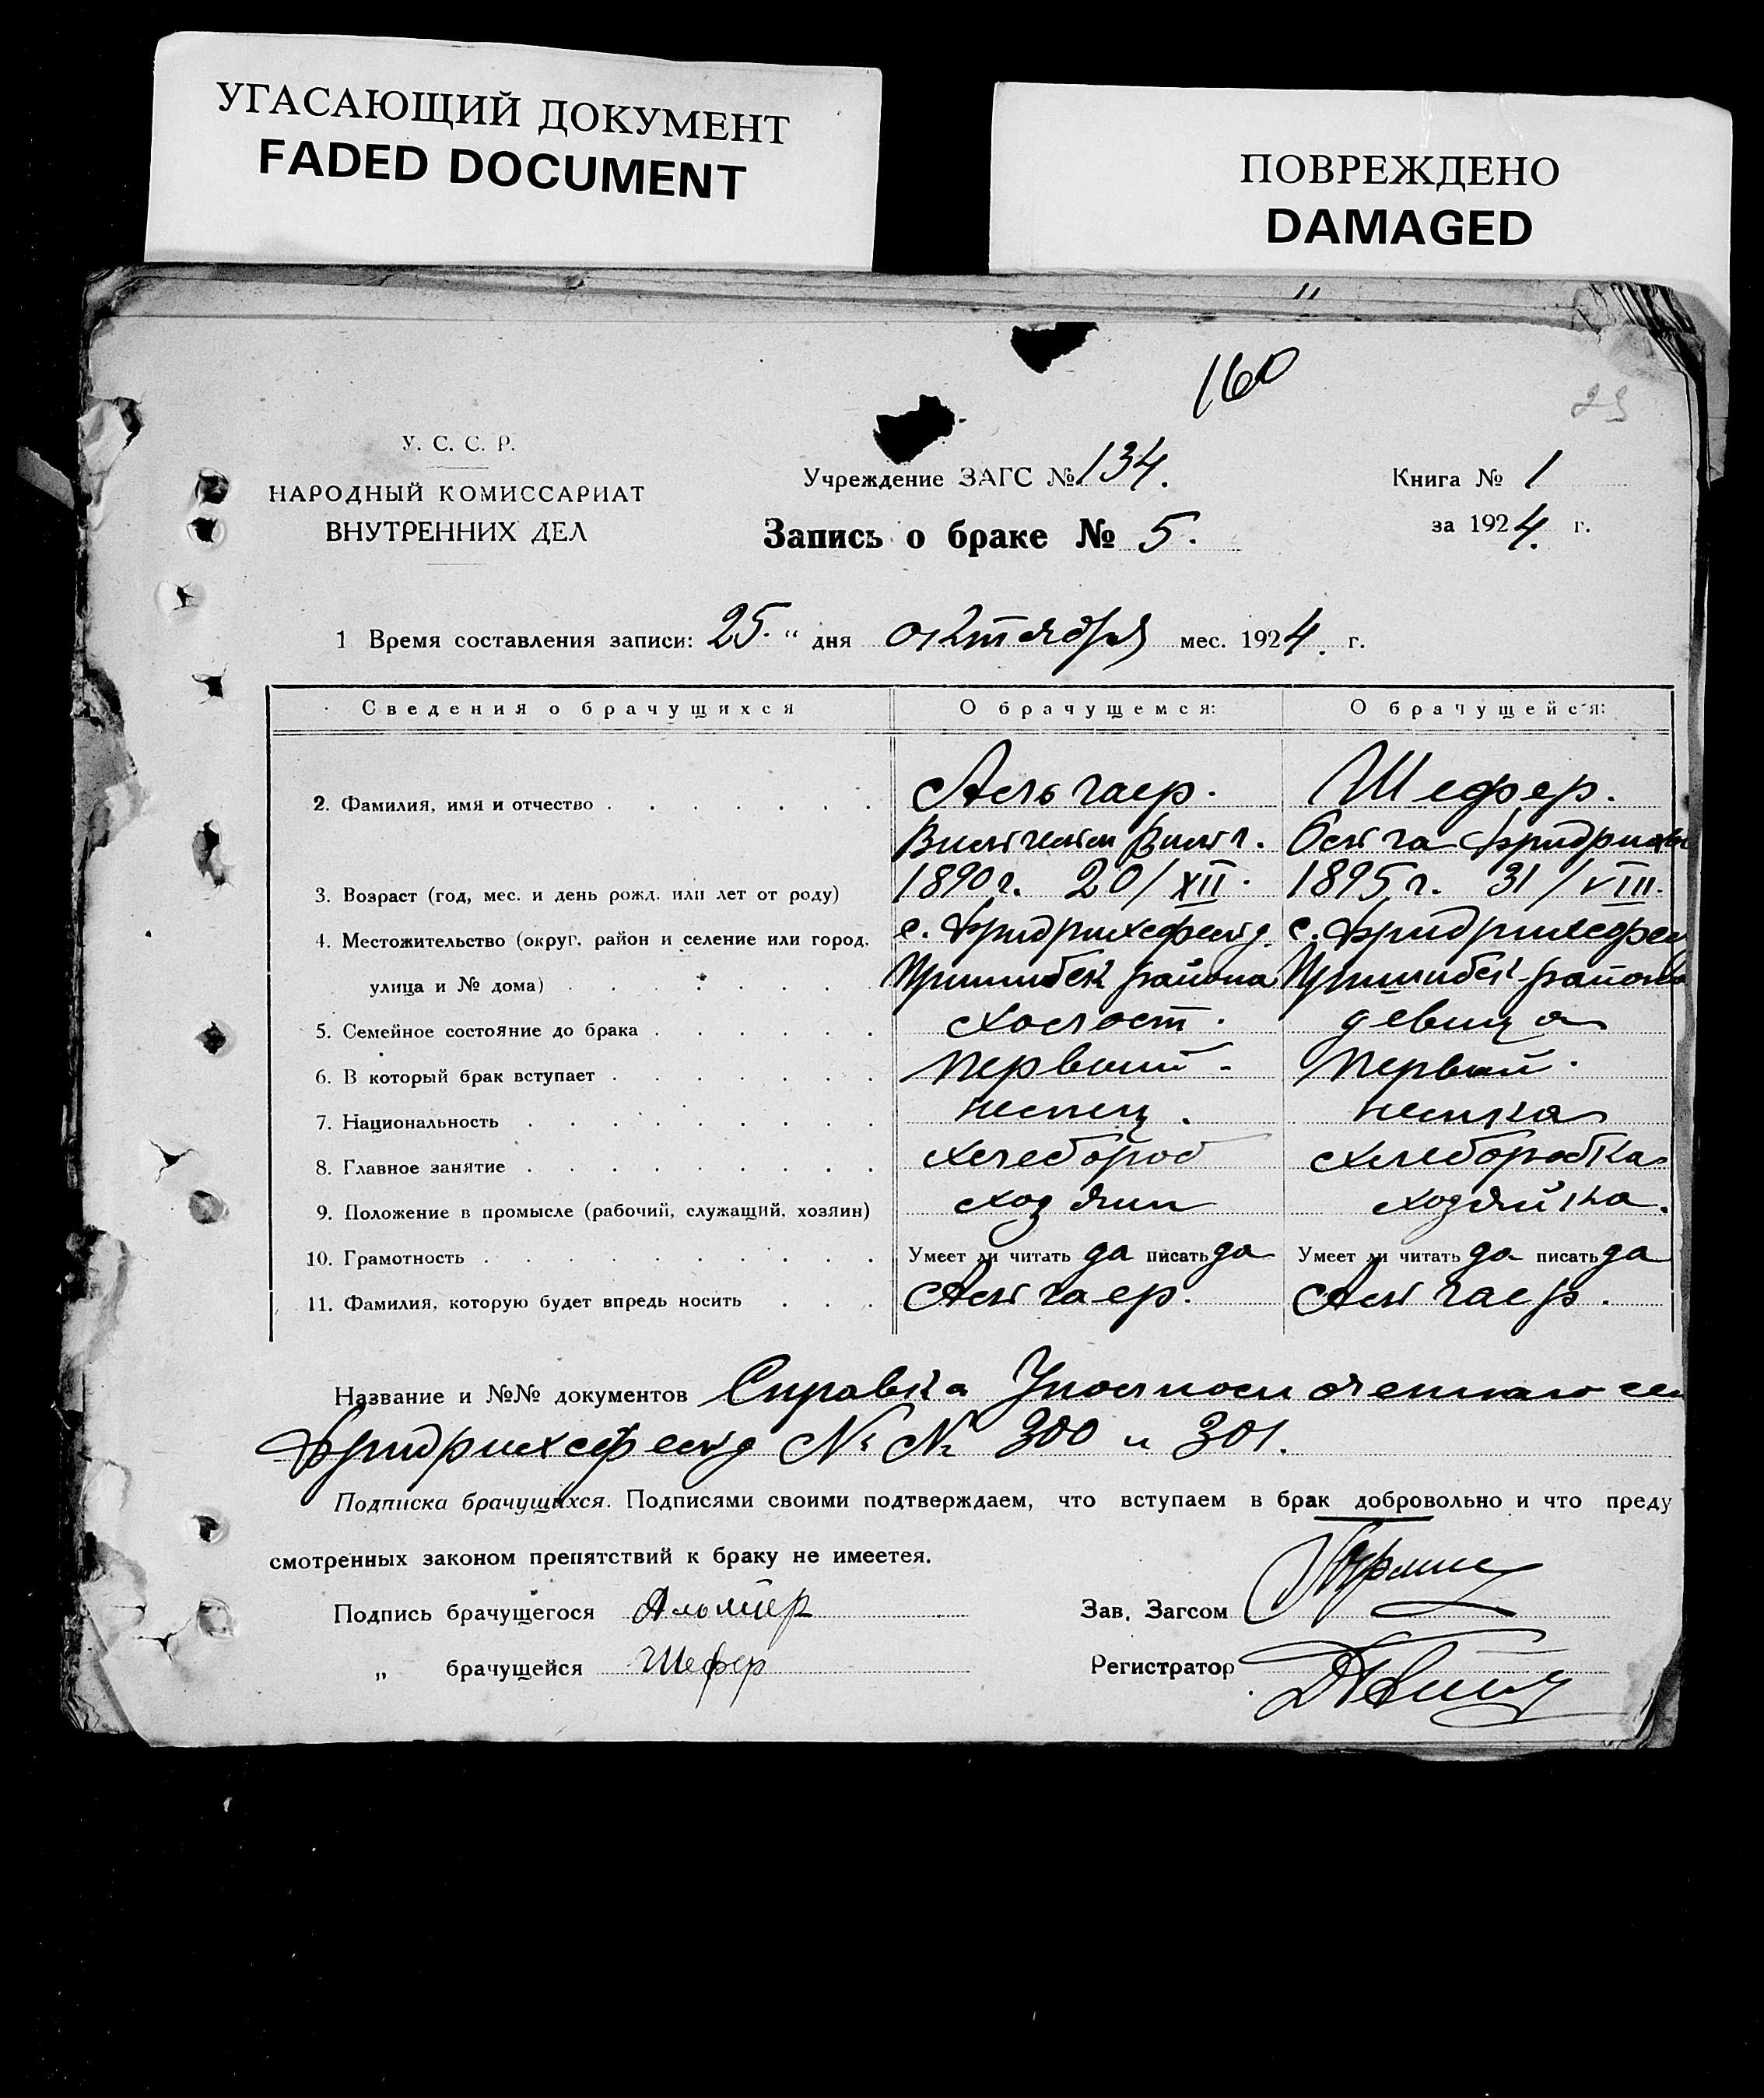 УГАСАЮЩИЙ ДОКУМЕНТ
FADED DOCUMENT
ПОВРЕЖДЕНО
DAMAGED
160
23
У. С. С. Р.
НАРОДНЫЙ КОМИССАРИАТ
ВНУТРЕННИХ ДЕЛ
Учреждение ЗАГС № 134.
Запись о браке № 5.
Книга № 1
за 1924. г.
1 Время составления записи: 25. " дня октября мес. 1924. г.
Сведения о брачущихся О брачущемся: О брачущейся:
2. Фамилия, имя и отчество Альгаер. Шефер.
Вильгельм Вильг. Ольга Фридрихов
3. Возраст (год, мес. и день рожд. или лет от роду) 1890 г. 20/XII. 1895 г. 31/VIII.
4. Местожительство (округ, район и селение или город, с. Фридрихсфельд. с. Фридрихсфел
улица и № дома) Пришибск района Пришибск района
5. Семейное состояние до брака холост. девица
6. В который брак вступает первый. первый.
7. Национальность немец. немка
8. Главное занятие хлебороб хлеборобка
9. Положение в промысле (рабочий, служащий, хозяин) хозяин хозяйка.
10. Грамотность Умеет ли читать да писать да Умеет ли читать да писать да
11. Фамилия, которую будет впредь носить Альгаер. Альгаер.
Название и №№ документов Справка Уполномоченнаго сел
Фридрихсфельд №№ 300 и 301.
Подписка брачущихся. Подписями своими подтверждаем, что вступаем в брак добровольно и что преду
смотренных законом препятствий к браку не имеется.
Подпись брачущегося
Зав. Загсом
" брачущейся Шефер
Регистратор